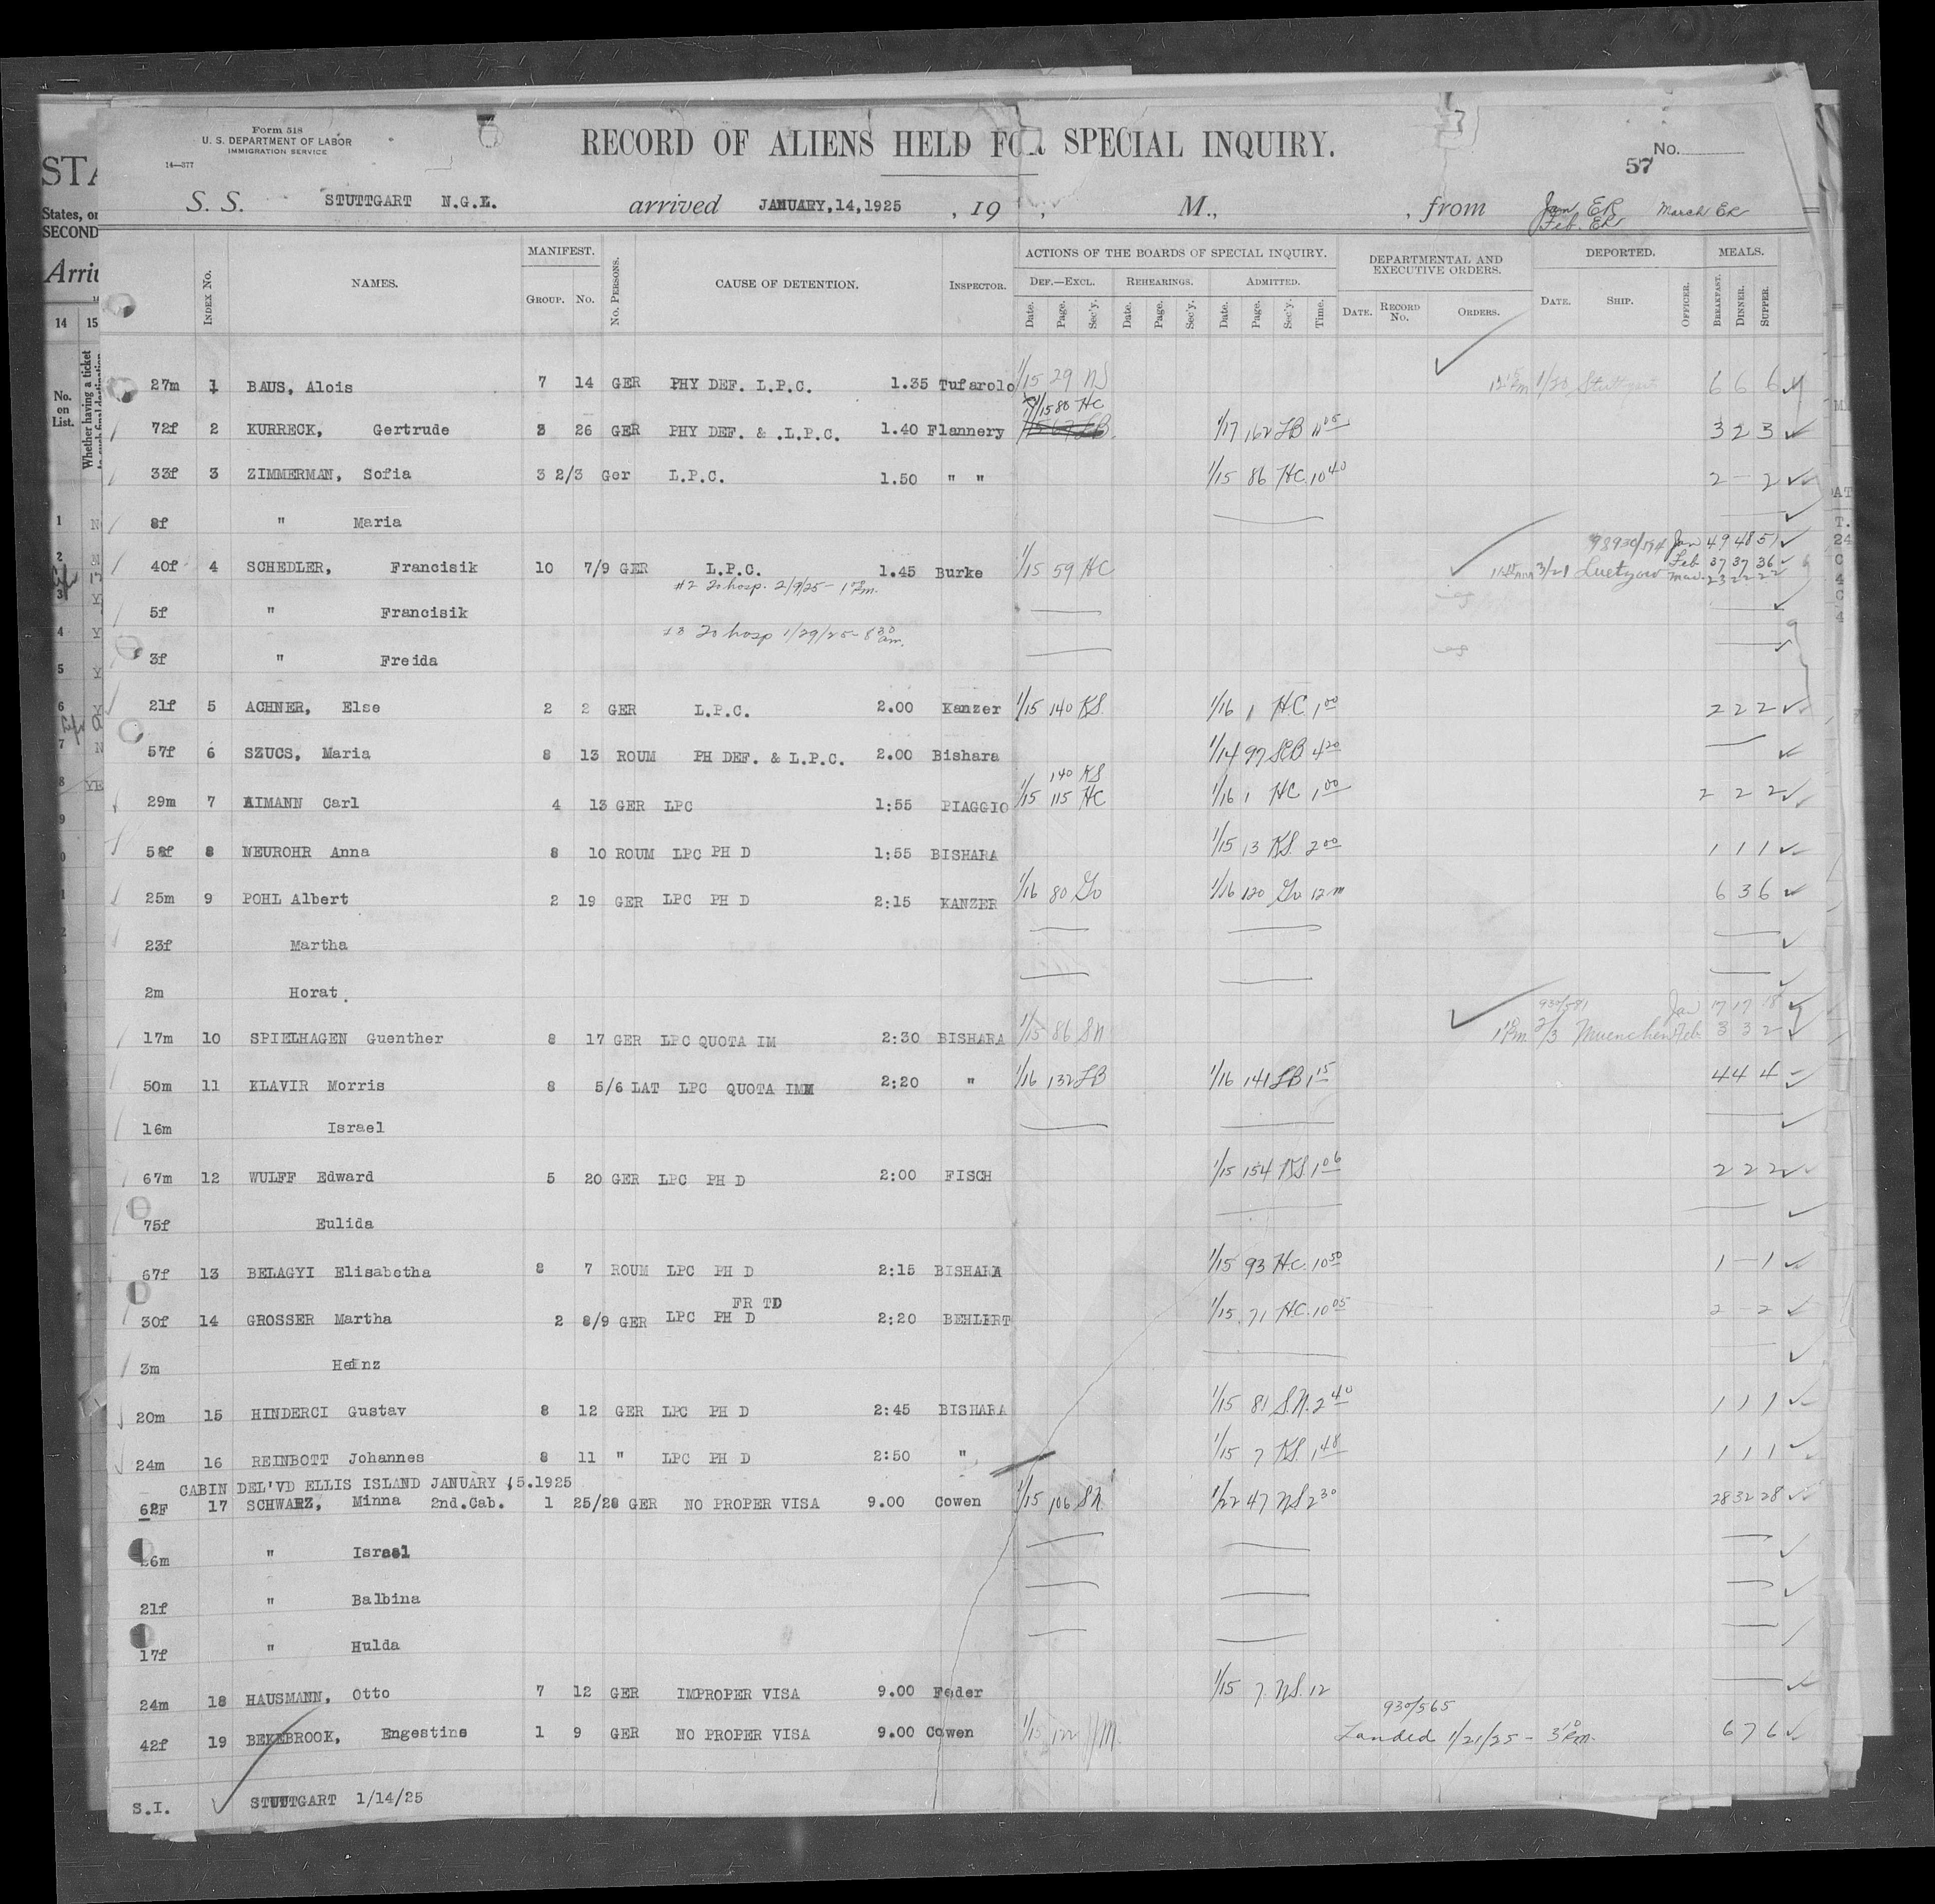 Form 518
U. S. DEPARTMENT OF LABOR
IMMIGRATION SERVICE
14—377
RECORD OF ALIENS HELD FOR SPECIAL INQUIRY.
No.
57
S. S. STUTTGART N.G.L. arrived JANUARY,14,1925 , 19 , M., , from Jan ER March ER
Feb. ER
INDEX NO. NAMES. MANIFEST. GROUP. NO. NO. PERSONS. CAUSE OF DETENTION. INSPECTOR. ACTIONS OF THE BOARDS OF SPECIAL INQUIRY. DEPARTMENTAL AND EXECUTIVE ORDERS. DEPORTED. MEALS.
DEF.—EXCL. REHEARINGS. ADMITTED.
Date. Page. Sec'y. Date. Page. Sec'y. Date. Page. Sec'y. Time. DATE. RECORD No. ORDERS. DATE. SHIP. OFFICER. BREAKFAST. DINNER. SUPPER.
27m 1 BAUS, Alois 7 14 GER PHY DEF. L.P.C. 1.35 Tufarolo 1/15 29 NS 1/20 Stuttgart 6 6 6
1/15 80 HC
72f 2 KURRECK, Gertrude 3 26 GER PHY DEF. & .L.P.C. 1.40 Flannery 1/17 162 LB 11 05 3 2 3
33f 3 ZIMMERMAN, Sofia 3 2/3 Ger L.P.C. 1.50 " " 1/15 86 HC 10 40 2 — 2
8f " Maria
98930/194 Jan 49 48 51
40f 4 SCHEDLER, Francisik 10 7/9 GER L.P.C. 1.45 Burke 1/15 59 HC 3/21 Luetzow Feb 37 37 36
#2 To hosp. 2/9/25 — 1 Pm. Mar. 23 22 22
5f " Francisik
#3 To hosp 1/29/25 — 8 30 am.
3f " Freida
21f 5 ACHNER, Else 2 2 GER L.P.C. 2.00 Kanzer 1/15 140 KS 1/16 1 HC 1 00 2 2 2
57f 6 SZUCS, Maria 8 13 ROUM PH DEF. & L.P.C. 2.00 Bishara 1/14 97 SEB 4 20
140 KS
29m 7 AIMANN Carl 4 13 GER LPC 1:55 PIAGGIO 1/15 115 HC 1/16 1 HC 1 00 2 2 2
58f 8 NEUROHR Anna 8 10 ROUM LPC PH D 1:55 BISHARA 1/15 13 KS 2 00 1 1 1
25m 9 POHL Albert 2 19 GER LPC PH D 2:15 KANZER 1/16 80 Go 1/16 120 Go 12 m 6 3 6
23f Martha
2m Horat.
930/591 Jan 17 17 18
17m 10 SPIELHAGEN Guenther 8 17 GER LPC QUOTA IM 2:30 BISHARA 1/15 86 SN 2/3 Muenchen Feb. 3 3 2
50m 11 KLAVIR Morris 8 5/6 LAT LPC QUOTA IMM 2:20 " 1/16 132 LB 1/16 141 LB 1 15 4 4 4
16m Israel
67m 12 WULFF Edward 5 20 GER LPC PH D 2:00 FISCH 1/15 154 KS 1 06 2 2 2
75f Eulida
67f 13 BELAGYI Elisabetha 8 7 ROUM LPC PH D 2:15 BISHARA 1/15 93 H.C. 10 50 1 — 1
FR TD
30f 14 GROSSER Martha 2 8/9 GER LPC PH D 2:20 BEHLERT 1/15 71 HC. 10 05 2 2
3m Heinz
20m 15 HINDERCI Gustav 8 12 GER LPC PH D 2:45 BISHARA 1/15 81 S.N. 2 40 1 1 1
24m 16 REINBOTT Johannes 8 11 " LPC PH D 2:50 " 1/15 7 KS. 1 48 1 1 1
CABIN DEL'VD ELLIS ISLAND JANUARY 15.1925
62F 17 SCHWARZ, Minna 2nd.Cab. 1 25/28 GER NO PROPER VISA 9.00 Cowen 1/15 106 SN. 1/22 47 NS 2 30 28 32 28
26m " Israel
21f " Balbina
17f " Hulda
24m 18 HAUSMANN, Otto 7 12 GER IMPROPER VISA 9.00 Feder 1/15 7. NS. 12
930/565
42f 19 BEKEBROOK, Engestine 1 9 GER NO PROPER VISA 9.00 Cowen 1/15 122 Landed 1/21/25 — 3 10 Pm. 6 7 6
S.I. STUTTGART 1/14/25